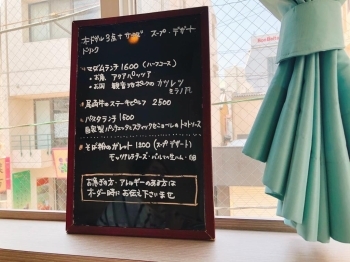 オードブル3点+サラダ スープ・デザート
ドリンク
マダムランチ 1600 (ハーフコース)
・お魚 アクアパッツァ
・お肉 観音池ポークのカツレツ
ミラノ風
尾崎牛のステーキピルツ 2500
パスタランチ 1500
自家製パンチェッタとスティックセニョールのトマトソース
そば粉のガレット 1200 (スープ デザート)
モッツァレラチーズ・パルマ産生ハム・卵
お急ぎの方・アレルギーのある方は
オーダー時にお伝え下さいませ